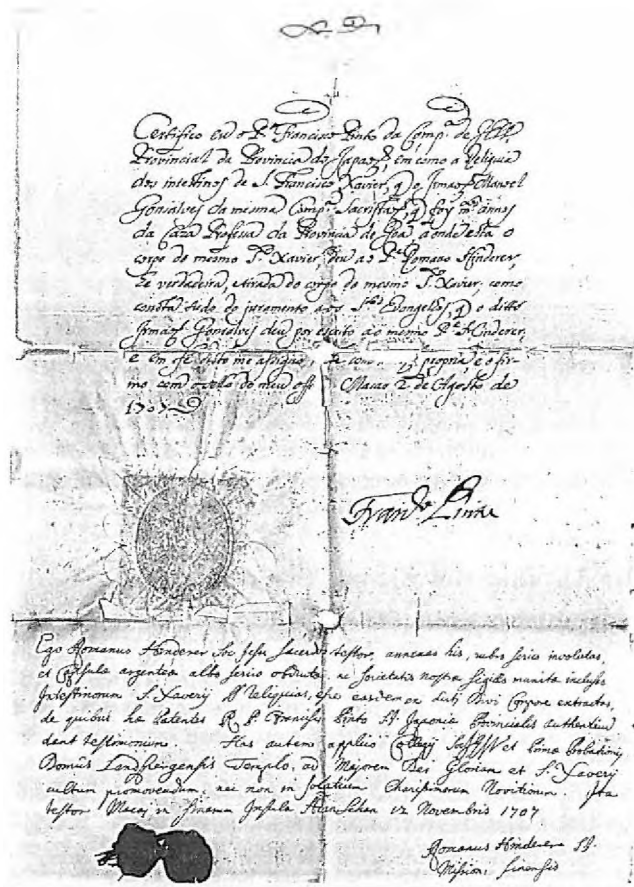 Certifico eu o P.e Francisco Pinto da Comp.a de JESV,
Provincial da Provincia de Japaõ, em como a Reliquia
dos intestinos de S. Francisco Xavier, q̃ o Irmaõ Manoel
Gonçalves da mesma Comp.a Sacristaõ, q̃ foy m.tos annos
da Caza Professa da Provincia de Goa, aonde esta o
corpo do mesmo S.to Xavier, deu ao P.e Romano Hinderer,
he verdadeira, e tirada do corpo do mesmo S.to Xavier, como
consta tudo do juramento aos S.tos Evangelhos, q̃ o ditto
Irmaõ Gonçalves deu por escrito ao mesmo P.e Hinderer,
e em fé disto me assigno propria, e o fir
mo com o sello do meu off Macao 2 de Agosto de
1707
Fran.co Pinto
Ego Romanus Hinderer Soc Jesu Sacerdos testor, annexas his, rubro serico involutas,
et Capsula argentea albo serico obducta, ac Societatis nostræ Sigillo munita inclusas
Intestinorum S. Xaverij Reliquias, esse easdem ex dicti Divi Corpore extractas,
de quibus hæ Patentes R. P. Francisci Pinto SJ. Japoniæ Provincialis authenticum
dant testimonium. Has autem applico Collegij et primæ Probationis
Domûs Landspergensis Templo, ad Majorem Dei Gloriam et S. Xaverij
cultum promovendum, nec non in solatium Charissimorum Novitiorum. Ita
testor Macai in Sinarum Insula 12 Novembris 1707
Romanus Hinderer SJ.
Mission: Sinensis